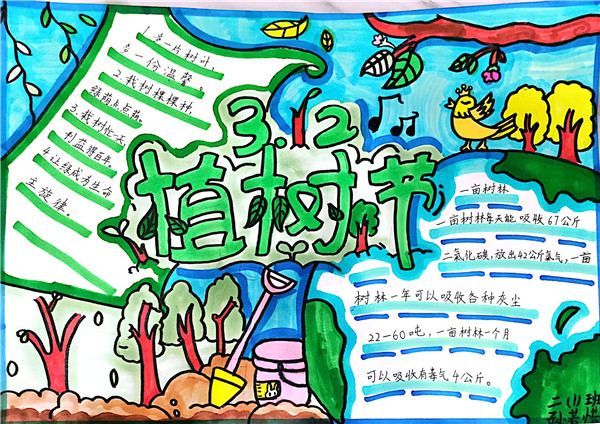 1.多一片树叶,
多一份温馨。
2.栽树棵棵种,
绿荫点点荫。
3.栽树忙一天,
利益得百年
4.让绿成为生命
主旋律。
3.12
植树节
一亩树林
一亩树林每天能吸收67公斤
二氧化碳,放出42公斤氧气,一亩
树林一年可以吸收各种灰尘
22—60吨,一亩树林一个月
可以吸收有毒气4公斤。
二(1)班